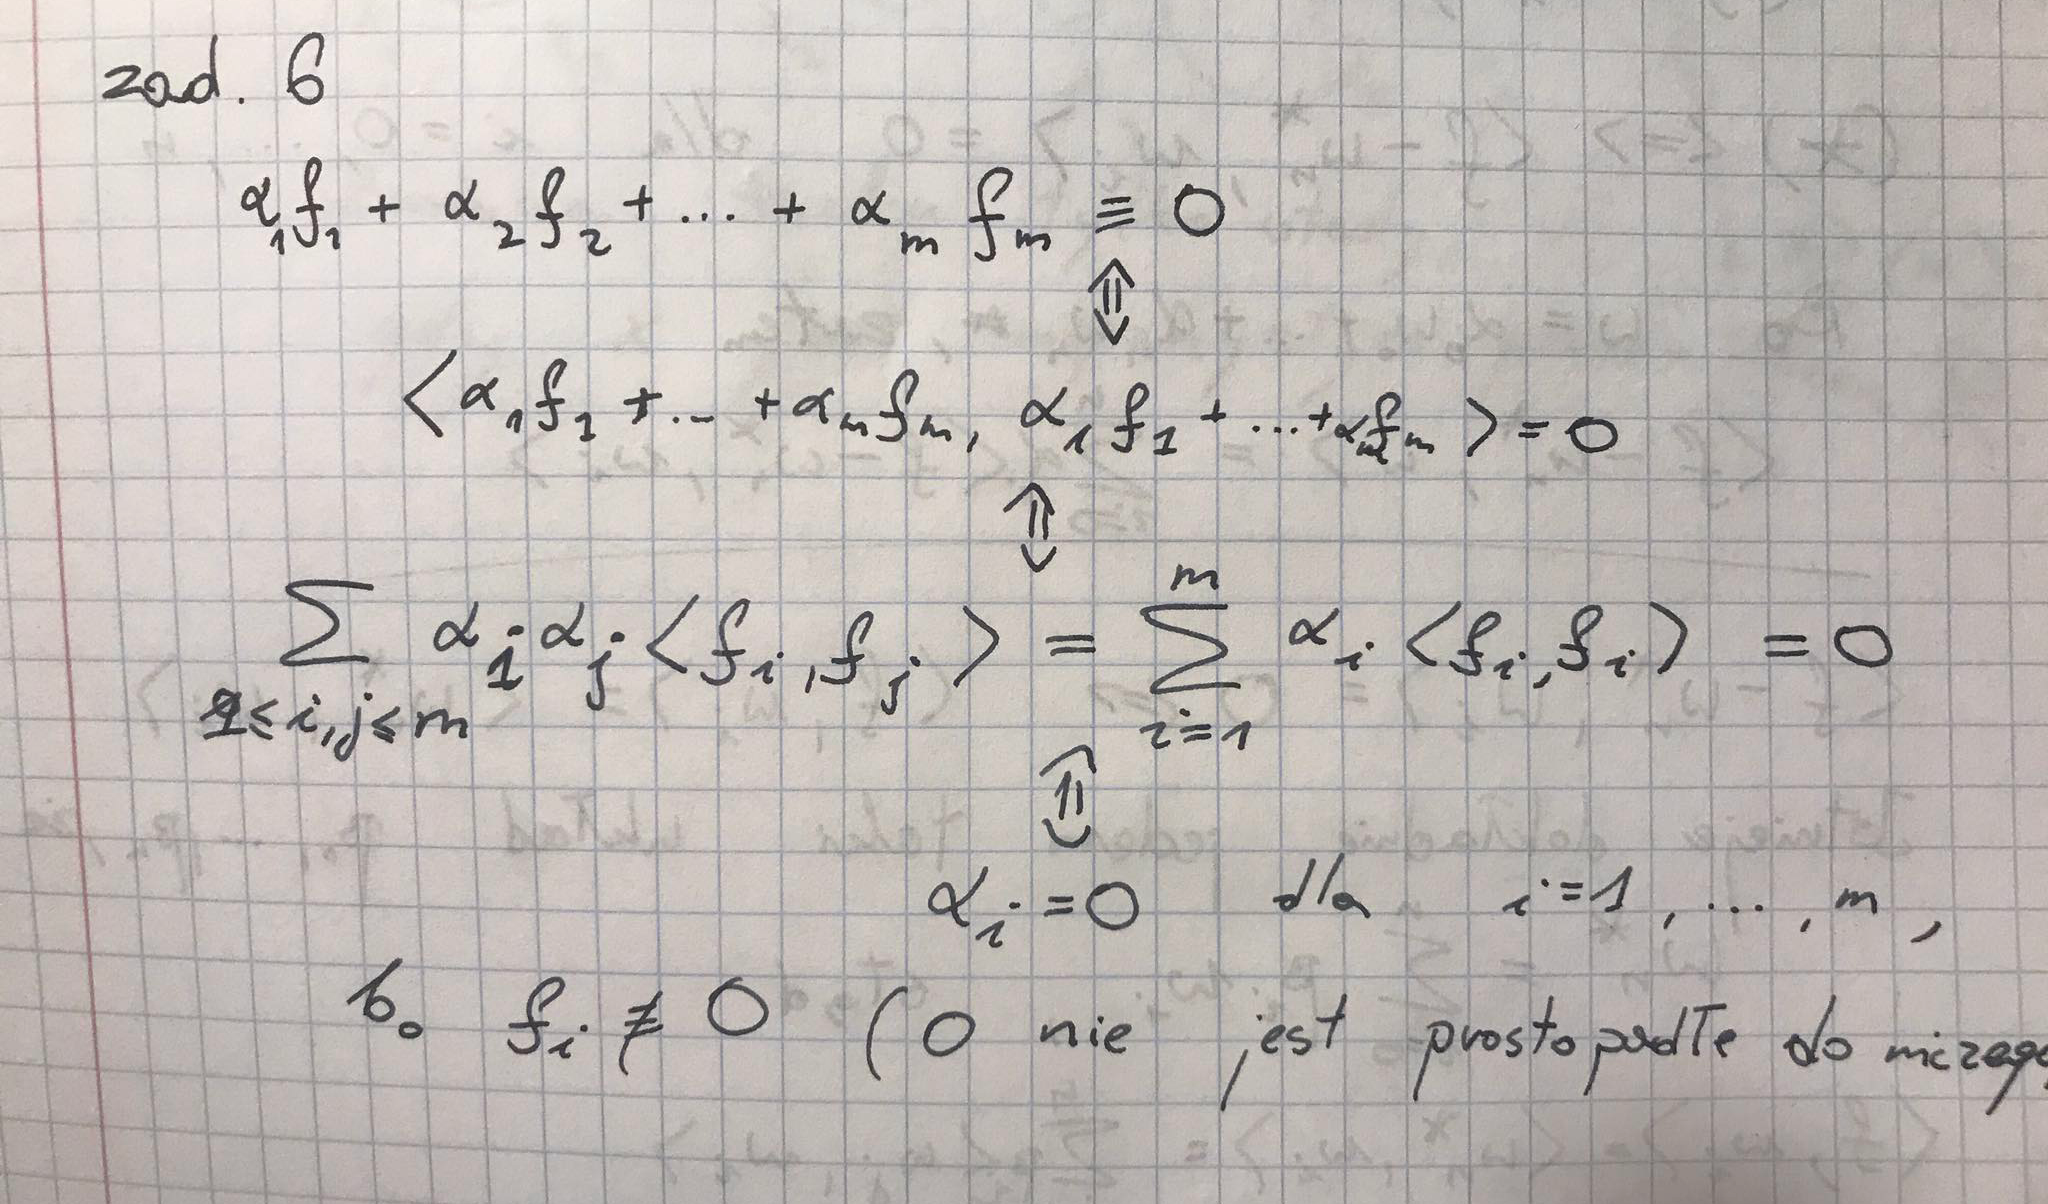 zad. 6
α₁f₁ + α₂f₂ + ... + αₘfₘ ≡ 0
⇕
<α₁f₁ + ... + αₘfₘ, α₁f₁ + ... + αₘfₘ> = 0
⇕
∑_{1≤i,j≤m} αᵢαⱼ<fᵢ,fⱼ> = ∑_{i=1}^{m} αᵢ<fᵢ,fᵢ> = 0
⇕
αᵢ = 0 dla i=1, ..., m,
bo fᵢ ≢ 0 (0 nie jest prostopadłe do niczego